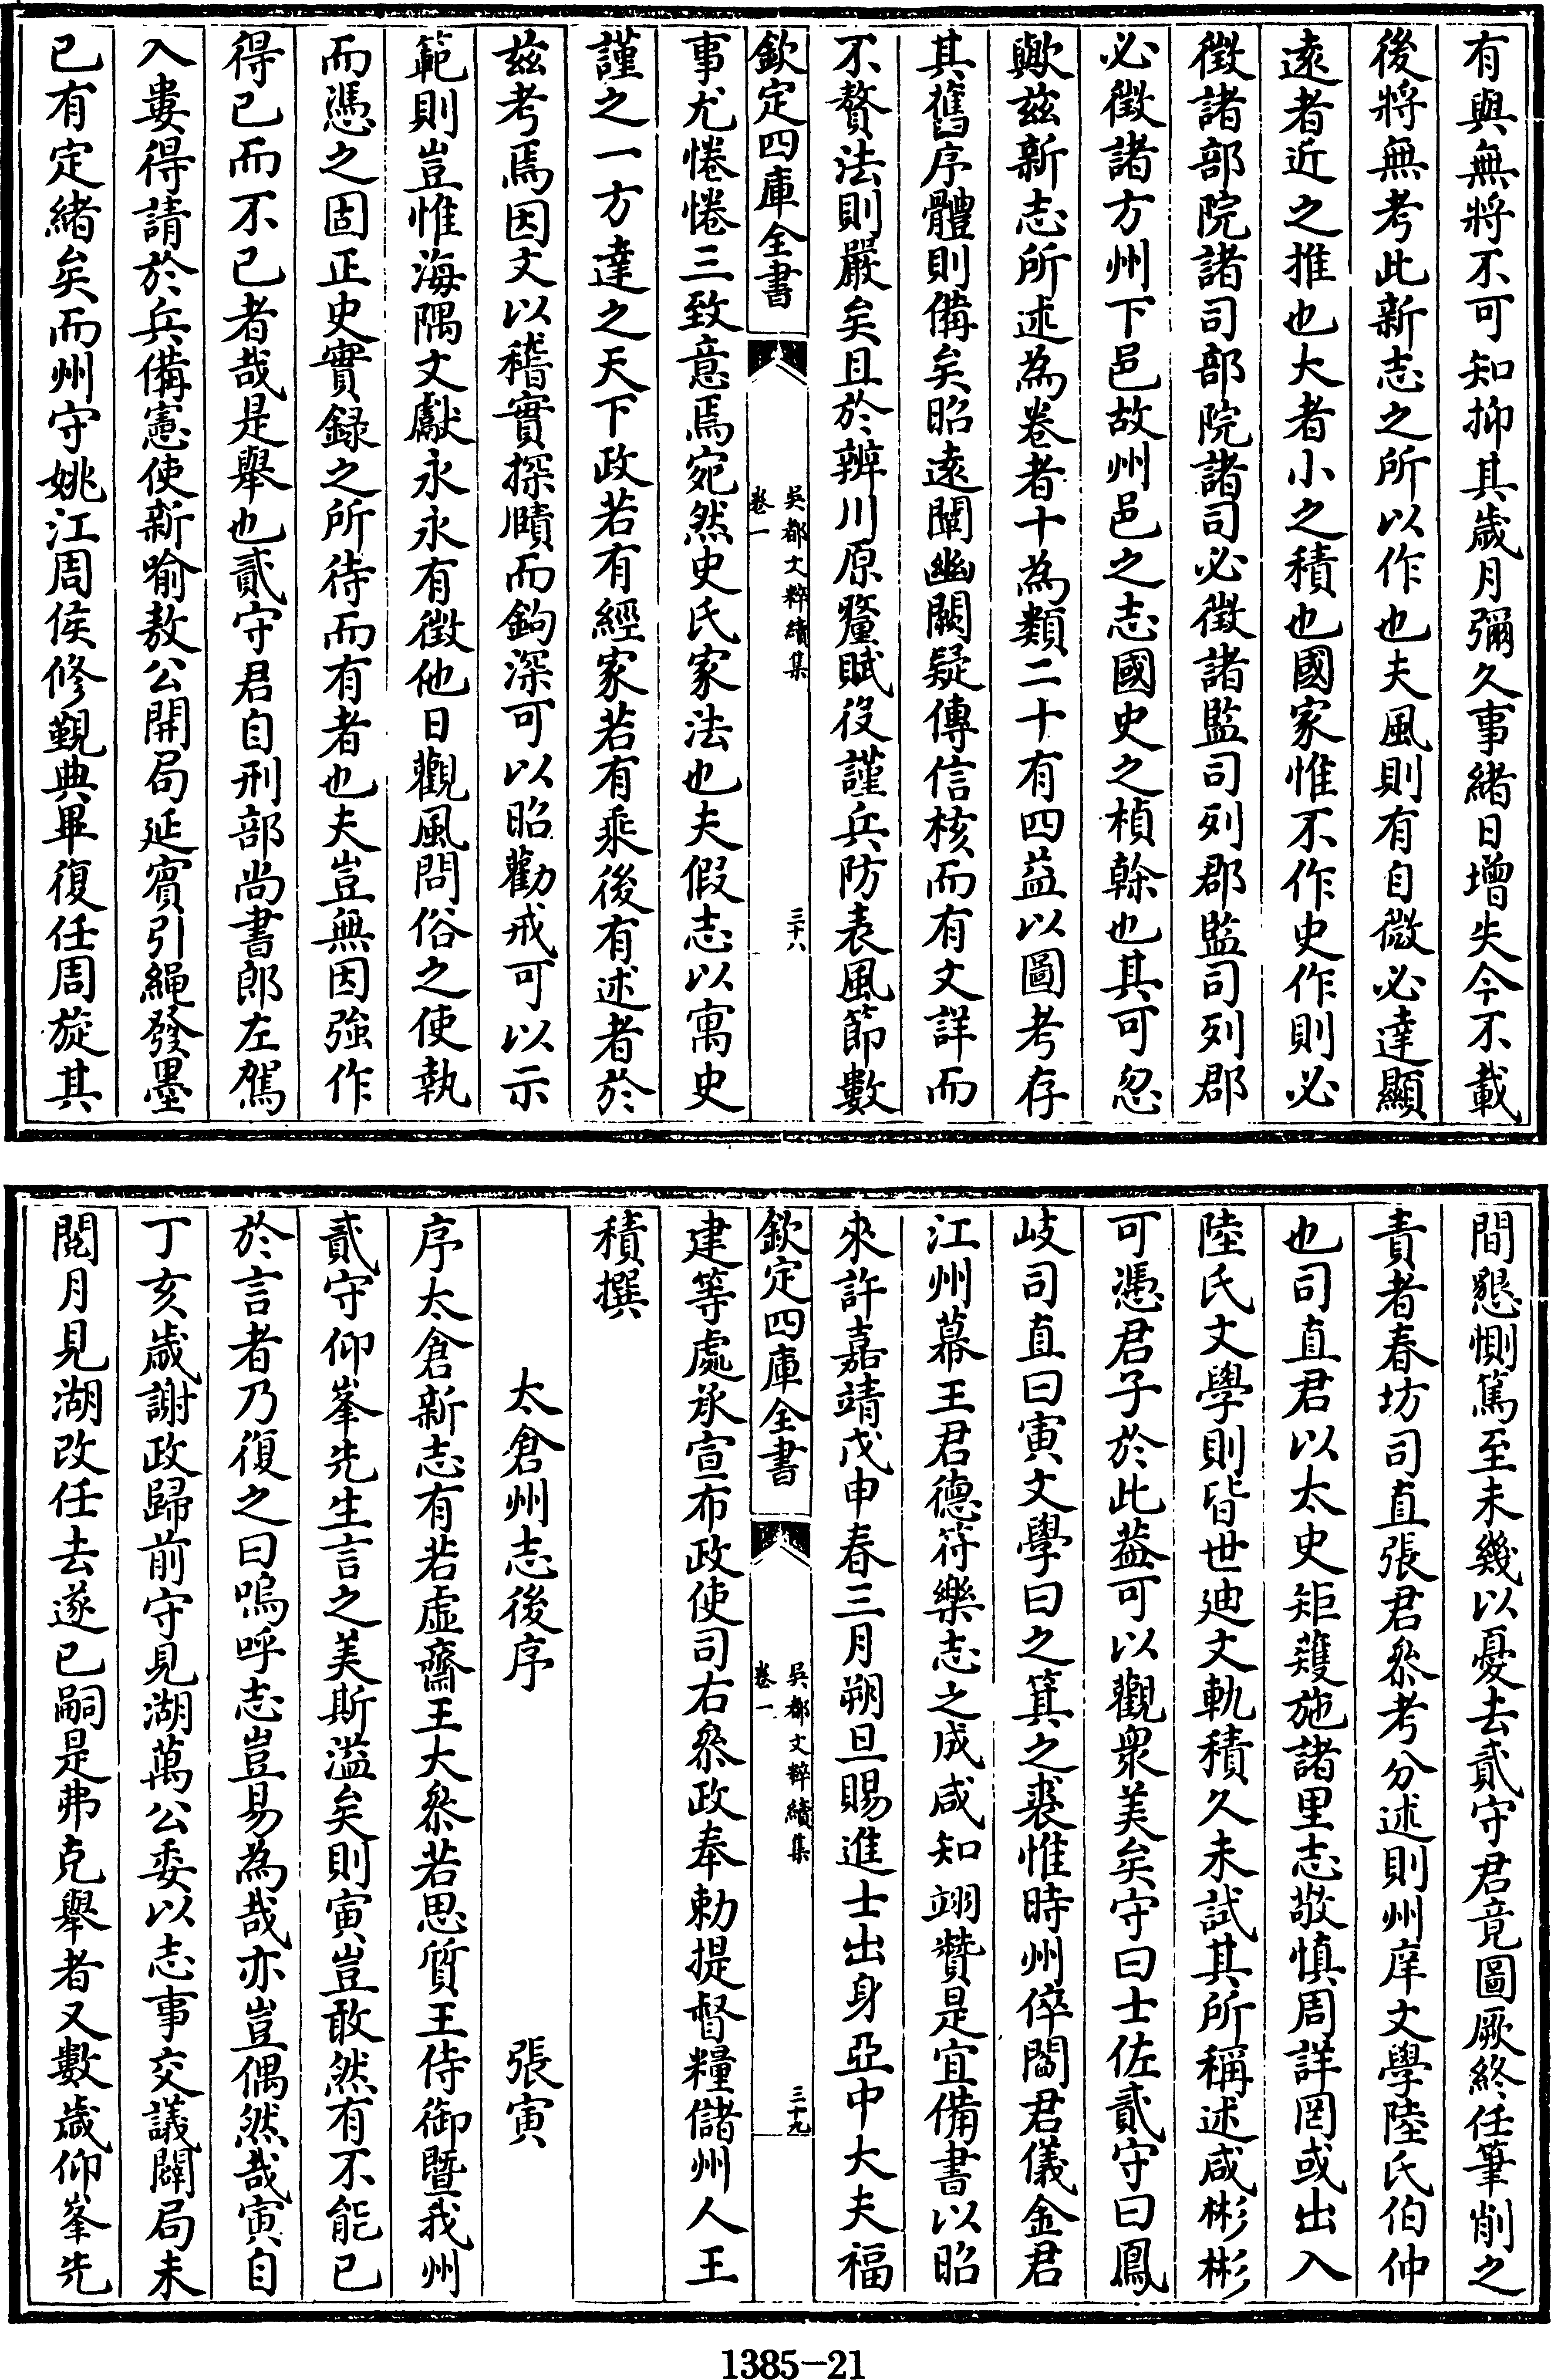 有與無將不可知抑其歲月彌久事緒日增失今不載
後將無考此新志之所以作也夫風則有自微必達顯
遠者近之推也大者小之積也國家惟不作史作則必
徵諸部院諸司部院諸司必徵諸監司列郡監司列郡
必徵諸方州下邑故州邑之志國史之楨榦也其可忽
歟兹新志所述為卷者十為類二十有四益以圖考存
其舊序體則備矣昭遠闡幽闕疑傳信核而有文詳而
不贅法則嚴矣且於辨川原釐賦役謹兵防表風節數
欽定四庫全書
吳都文粹續集
卷一
三十八
事尤惓惓三致意焉宛然史氏家法也夫假志以寓史
謹之一方達之天下政若有經家若有乘後有述者於
兹考焉因文以稽實探賾而鉤深可以昭勸戒可以示
範則豈惟海隅文獻永永有徵他日觀風問俗之使執
而憑之固正史實録之所待而有者也夫豈無因強作
得已而不已者哉是舉也貳守君自刑部尚書郎左駕
入婁得請於兵備憲使新喻敖公開局延賓引繩發墨
已有定緒矣而州守姚江周侯修覲典畢復任周旋其
間懇惻篤至未幾以憂去貳守君竟圖厥終任筆削之
責者春坊司直張君叅考分述則州庠文學陸氏伯仲
也司直君以太史矩蒦施諸里志敬慎周詳罔或出入
陸氏文學則皆世迪文軌積久未試其所稱述咸彬彬
可憑君子於此葢可以觀衆美矣守曰士佐貳守曰鳳
岐司直曰寅文學曰之箕之裘惟時州倅閻君儀金君
江州幕王君德符樂志之成咸知翊贊是宜備書以昭
來許嘉靖戊申春三月朔旦賜進士出身亞中大夫福
欽定四庫全書
吳都文粹續集
卷一
三十九
建等處承宣布政使司右叅政奉勅提督糧儲州人王
積撰
太倉州志後序 張寅
序太倉新志有若虛齋王大叅若思質王侍御暨我州
貳守仰峯先生言之美斯溢矣則寅豈敢然有不能已
於言者乃復之曰嗚呼志豈易為哉亦豈偶然哉寅自
丁亥歲謝政歸前守見湖萬公委以志事交議闢局未
閱月見湖改任去遂已嗣是弗克舉者又數歲仰峯先
1385-21